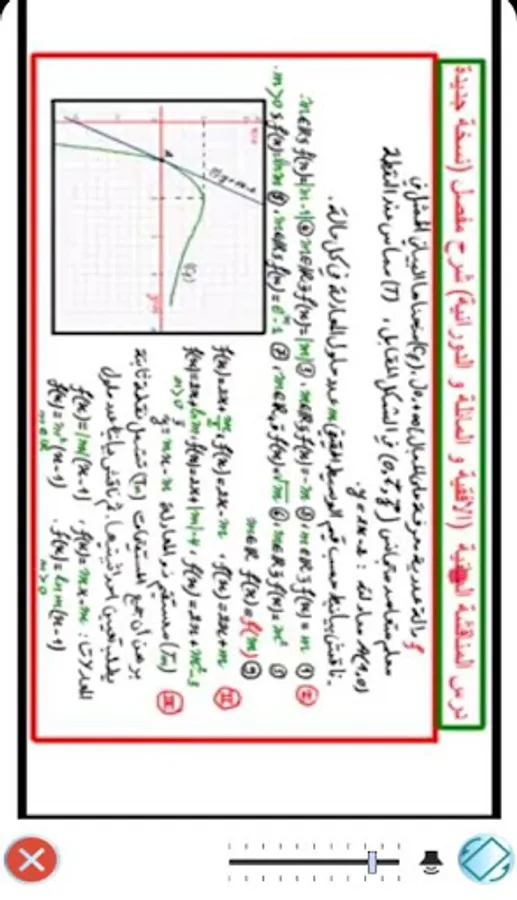 درس المناقشة البيانية (الأفقية و المائلة و الدورانية) شرح مفصل (نسخة جديدة
f دالة عددية معرفة على المجال ]0,+∞[، (Cf) منحناها البياني الممثل في
معلم متعامد متجانس في الشكل المقابل، (T) مماس عند النقطة
A(1,0) معادلته: y = 2x-2
ناقش بيانيا حسب قيم الوسيط الحقيقي m عدد حلول المعادلة في كل حالة.
① f(x)=m ; m∈R ② f(x)=-m ; m∈R ③ f(x)=|m| ; m∈R ④ f(x)=|m-1| ; m∈R
⑤ f(x)=m² ; m∈R ⑥ f(x)=√m ⑦ m∈R ; ⑧ f(x)=ln m ; m>0
⑨ f(x)=f(m) m∈R
f(x)=2x+m , f(x)=2x-m ,
f(x)=2x+m²-3 , f(x)=2x+|m|-4 , f(x)=2x+ln m
m>0
(Tm) مستقيم ذو المعادلة y=mx-m
برهن أن جميع المستقيمات (Tm) تشمل نقطة ثابتة
يطلب تعيين إحداثيتيها. ثم ناقش بيانيا عدد حلول
المعادلات: f(x)=mx-m , f(x)=|m|(x-1)
f(x)=ln m(x-1) , f(x)=m²(x-1)
m>0 m∈R
A
(Cf)